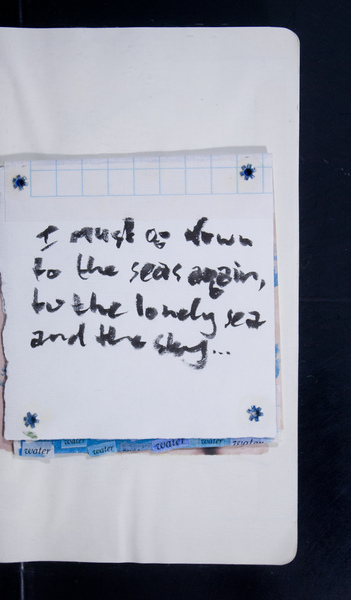 I must go down
to the seas again,
to the lonely sea
and the sky...
water water water water water water